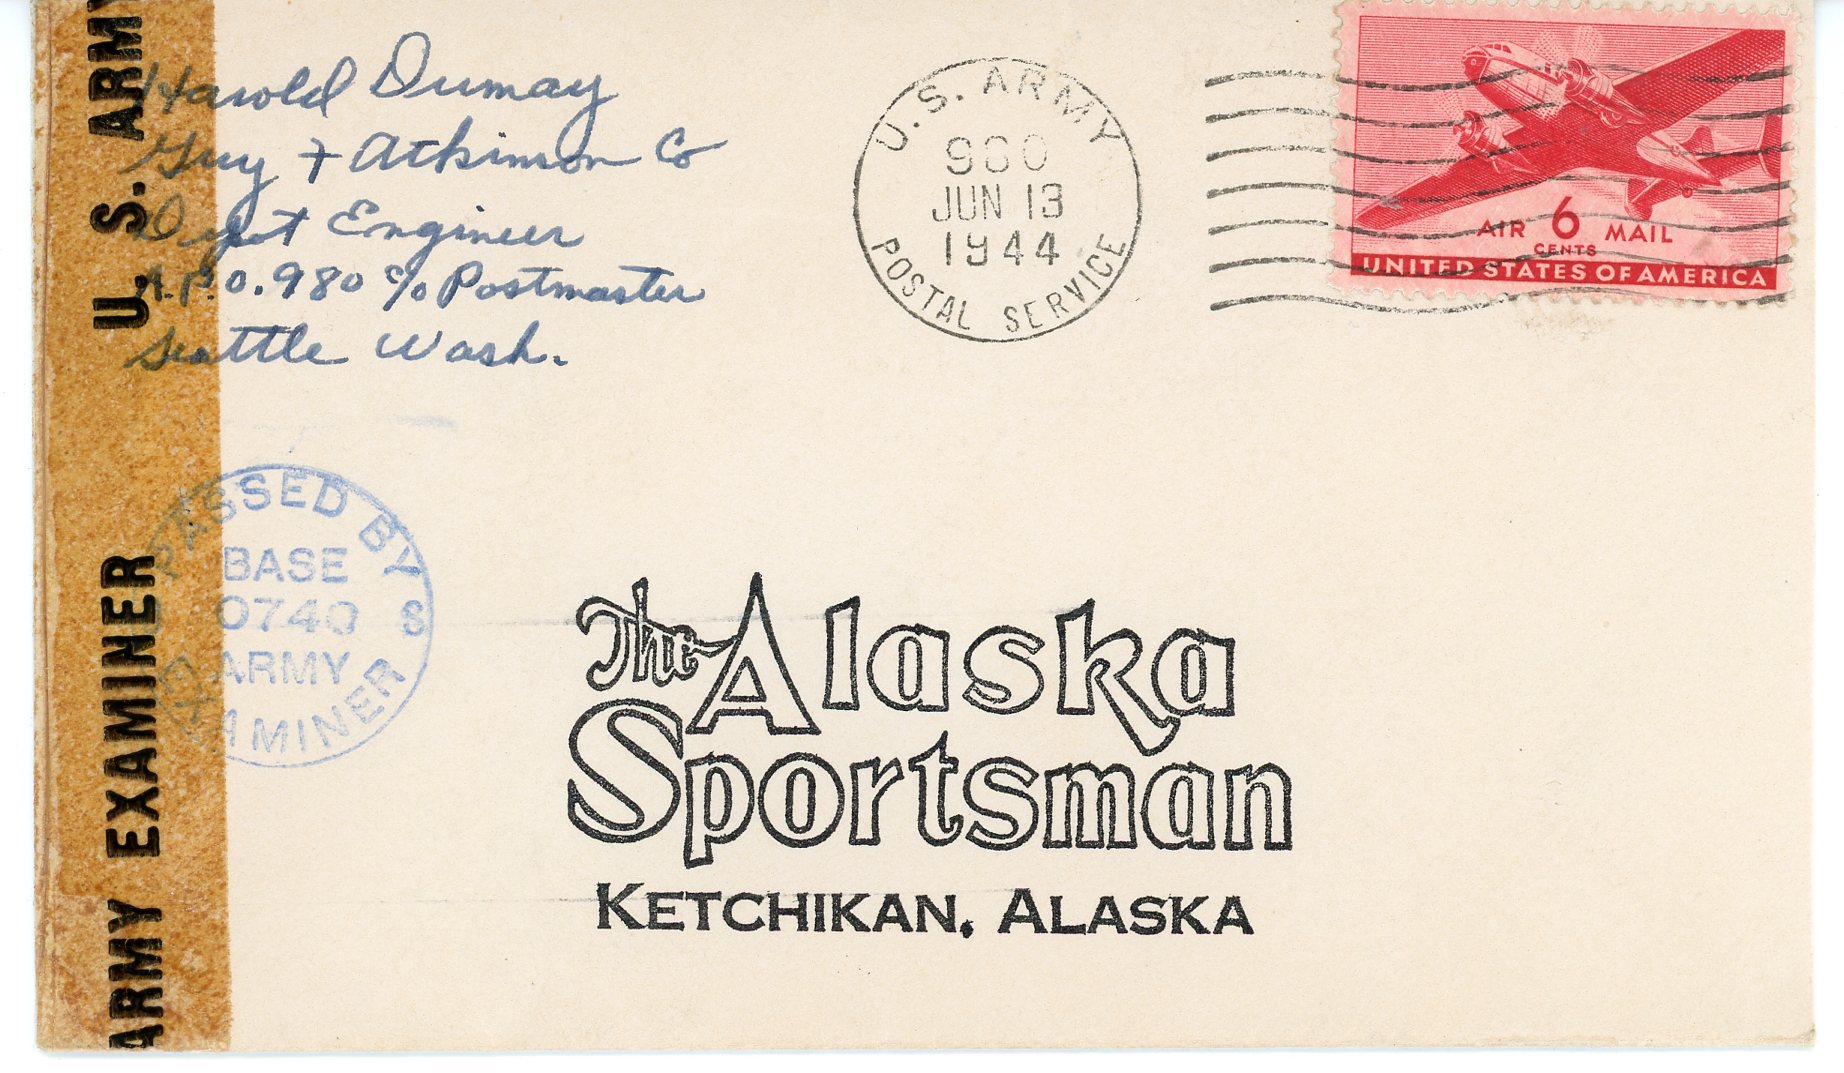 Harold Dumay
Guy + Atkinson Co
Depot Engineer
A.P.O. 980 c/o Postmaster
Seattle Wash.
U.S. ARMY
980
JUN 13
1944
POSTAL SERVICE
AIR 6 MAIL
CENTS
UNITED STATES OF AMERICA
U. S. ARMY
ARMY EXAMINER
PASSED BY
BASE
0740
ARMY
EXAMINER
S
The Alaska
Sportsman
KETCHIKAN, ALASKA